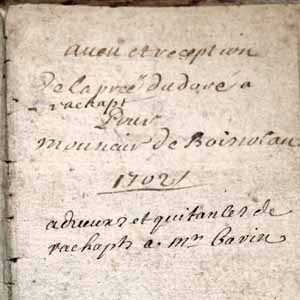 aueu et reception
de la pree du doré a
rachapt
Pour
mounsir de Boisrolan
1702
adueux et quitances de
rachapts a mr Gavin